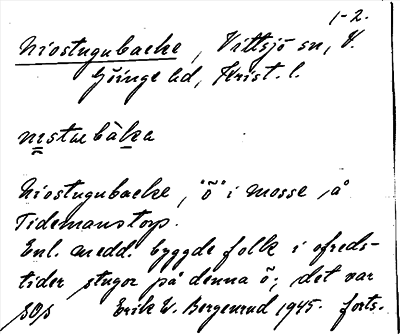 1-2.
Niostugubacke, Vittsjö sn, V.
Göinge hd, Krist. l.
Niostugubacke, "ö" i mosse å
Tidemanstorp.
Enl. medd. byggde folk i ofreds-
tider stugor på denna ö; det var
Erik W. Bergenrud 1945. forts.